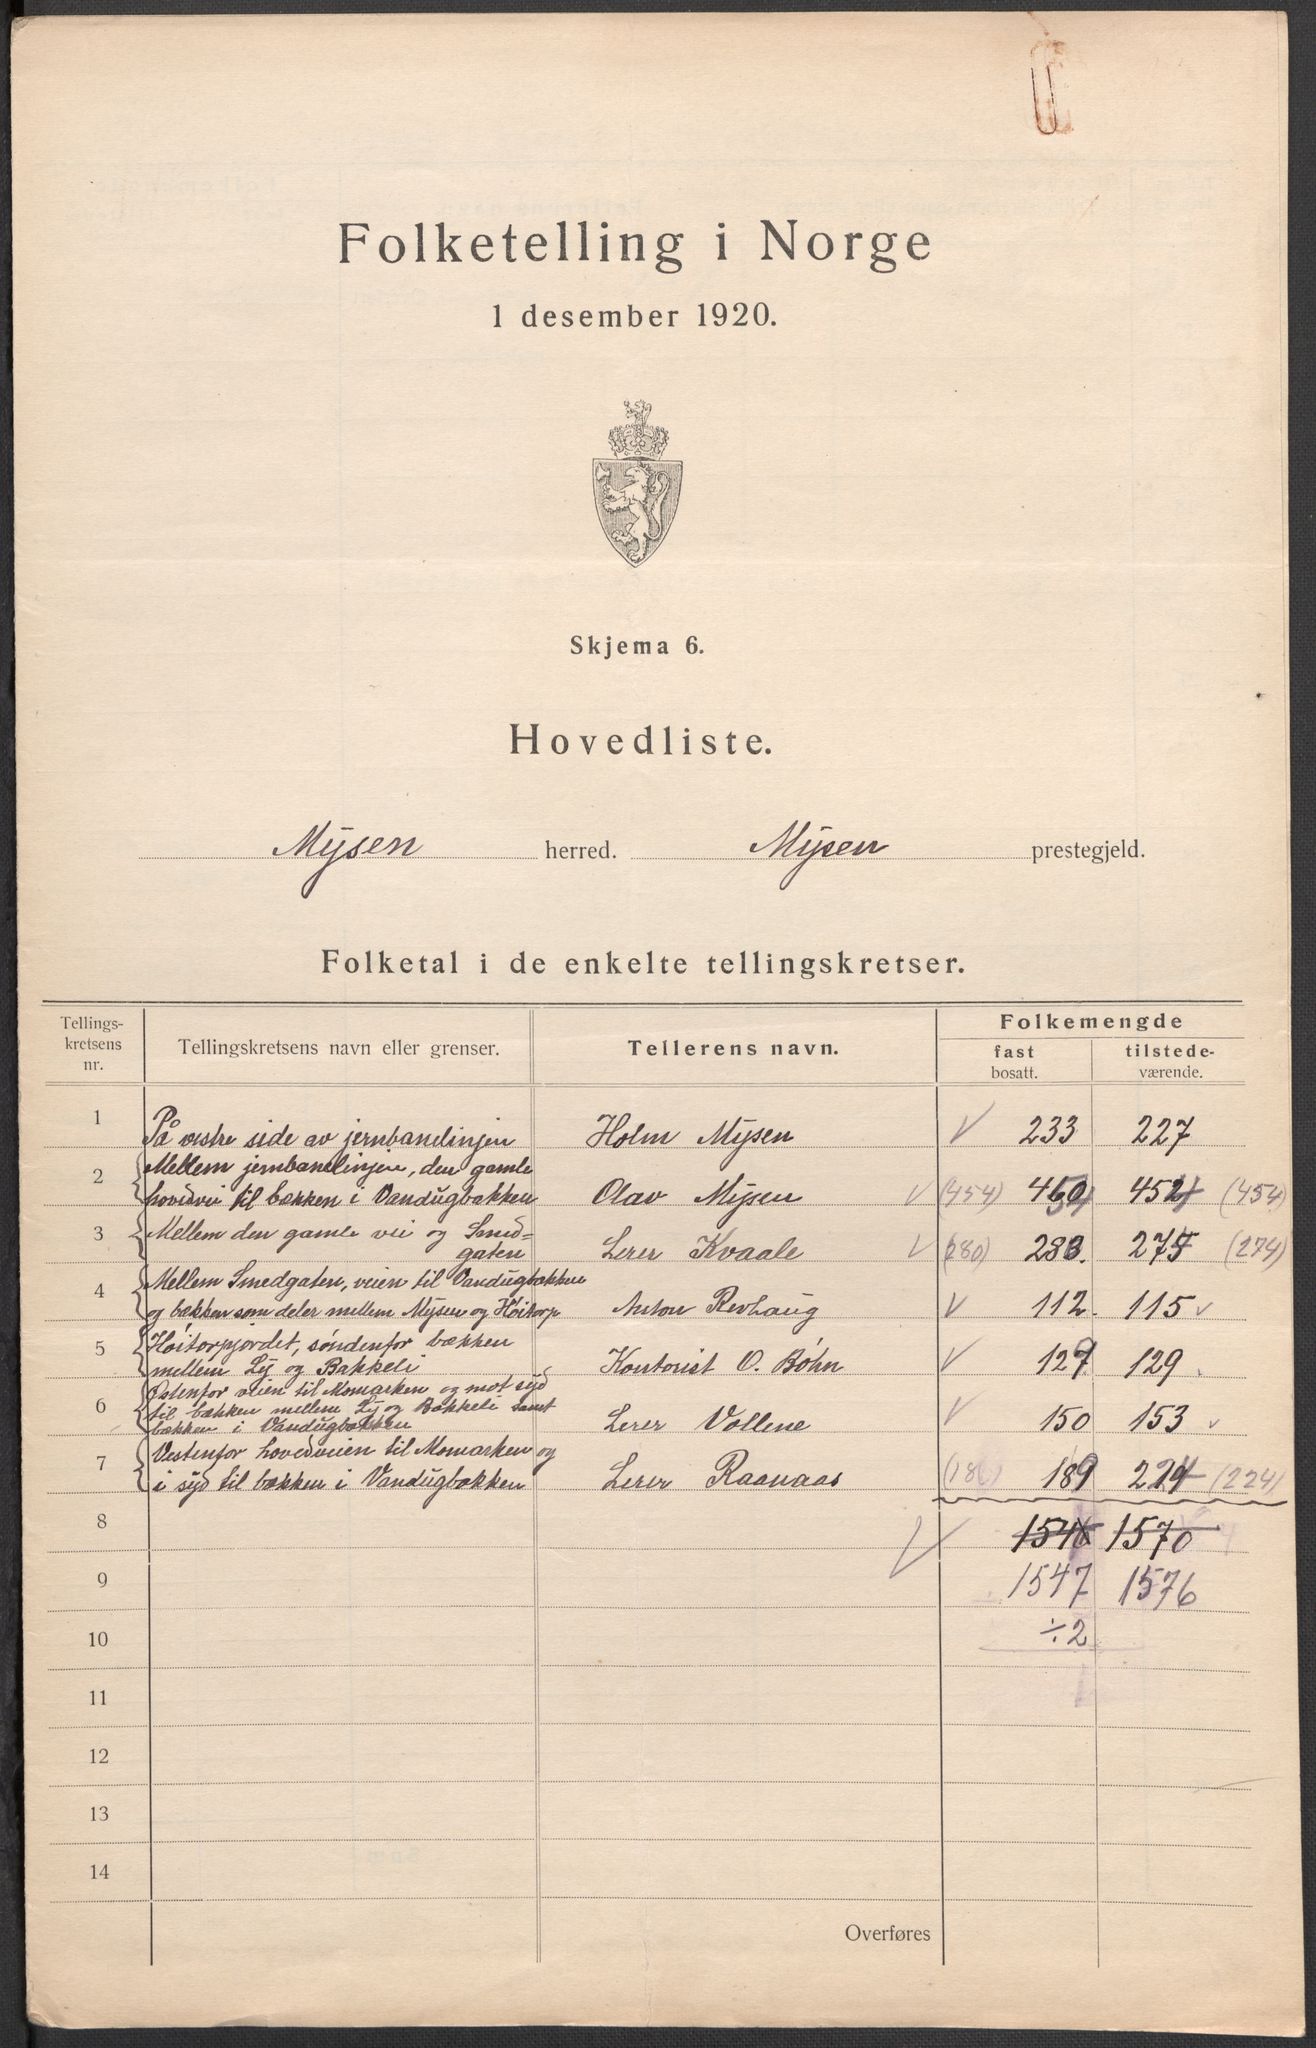 Folketelling i Norge
1 desember 1920.
Skjema 6.
Hovedliste.
Mysen herred. Mysen prestegjeld.
Folketal i de enkelte tellingskretser.
Tellings-
kretsens
nr.
Tellingskretsens navn eller grenser.
Tellerens navn.
Folkemengde
fast
bosatt.
tilstede-
værende.
1 På vestre side av jernbanelinjen Holm Mysen 233 227
Mellem jernbanelinjen, den gamle
2 hovedvei til bækken i Vandugbakken Olav Mysen (454) 452 (454)
3 Mellem den gamle vei og Smed=
gaten Lerer Kvaale (280) 283. 275 (274)
Mellem Smedgaten, veien til Vandugbakken
4 og bækken som deler mellem Mysen og Höitorp Anton Revhaug 112. 115
5 Höitorpjordet, söndenfor bækken
mellem Ly og Bakkeli Kontorist O. Böhn 127 129
Østenfor veien til Momarken og mot syd
6 til bækken mellem Ly og Bakkeli samt
bækken i Vandugbakken Lerer Vollene 150 153
Vestenfor hovedveien til Momarken og
7 i syd til bækken i Vandugbakken Lerer Raanaas 189 224 (224)
8 1546 1570
9 1547 1576
10 ÷2
11
12
13
14
Overføres